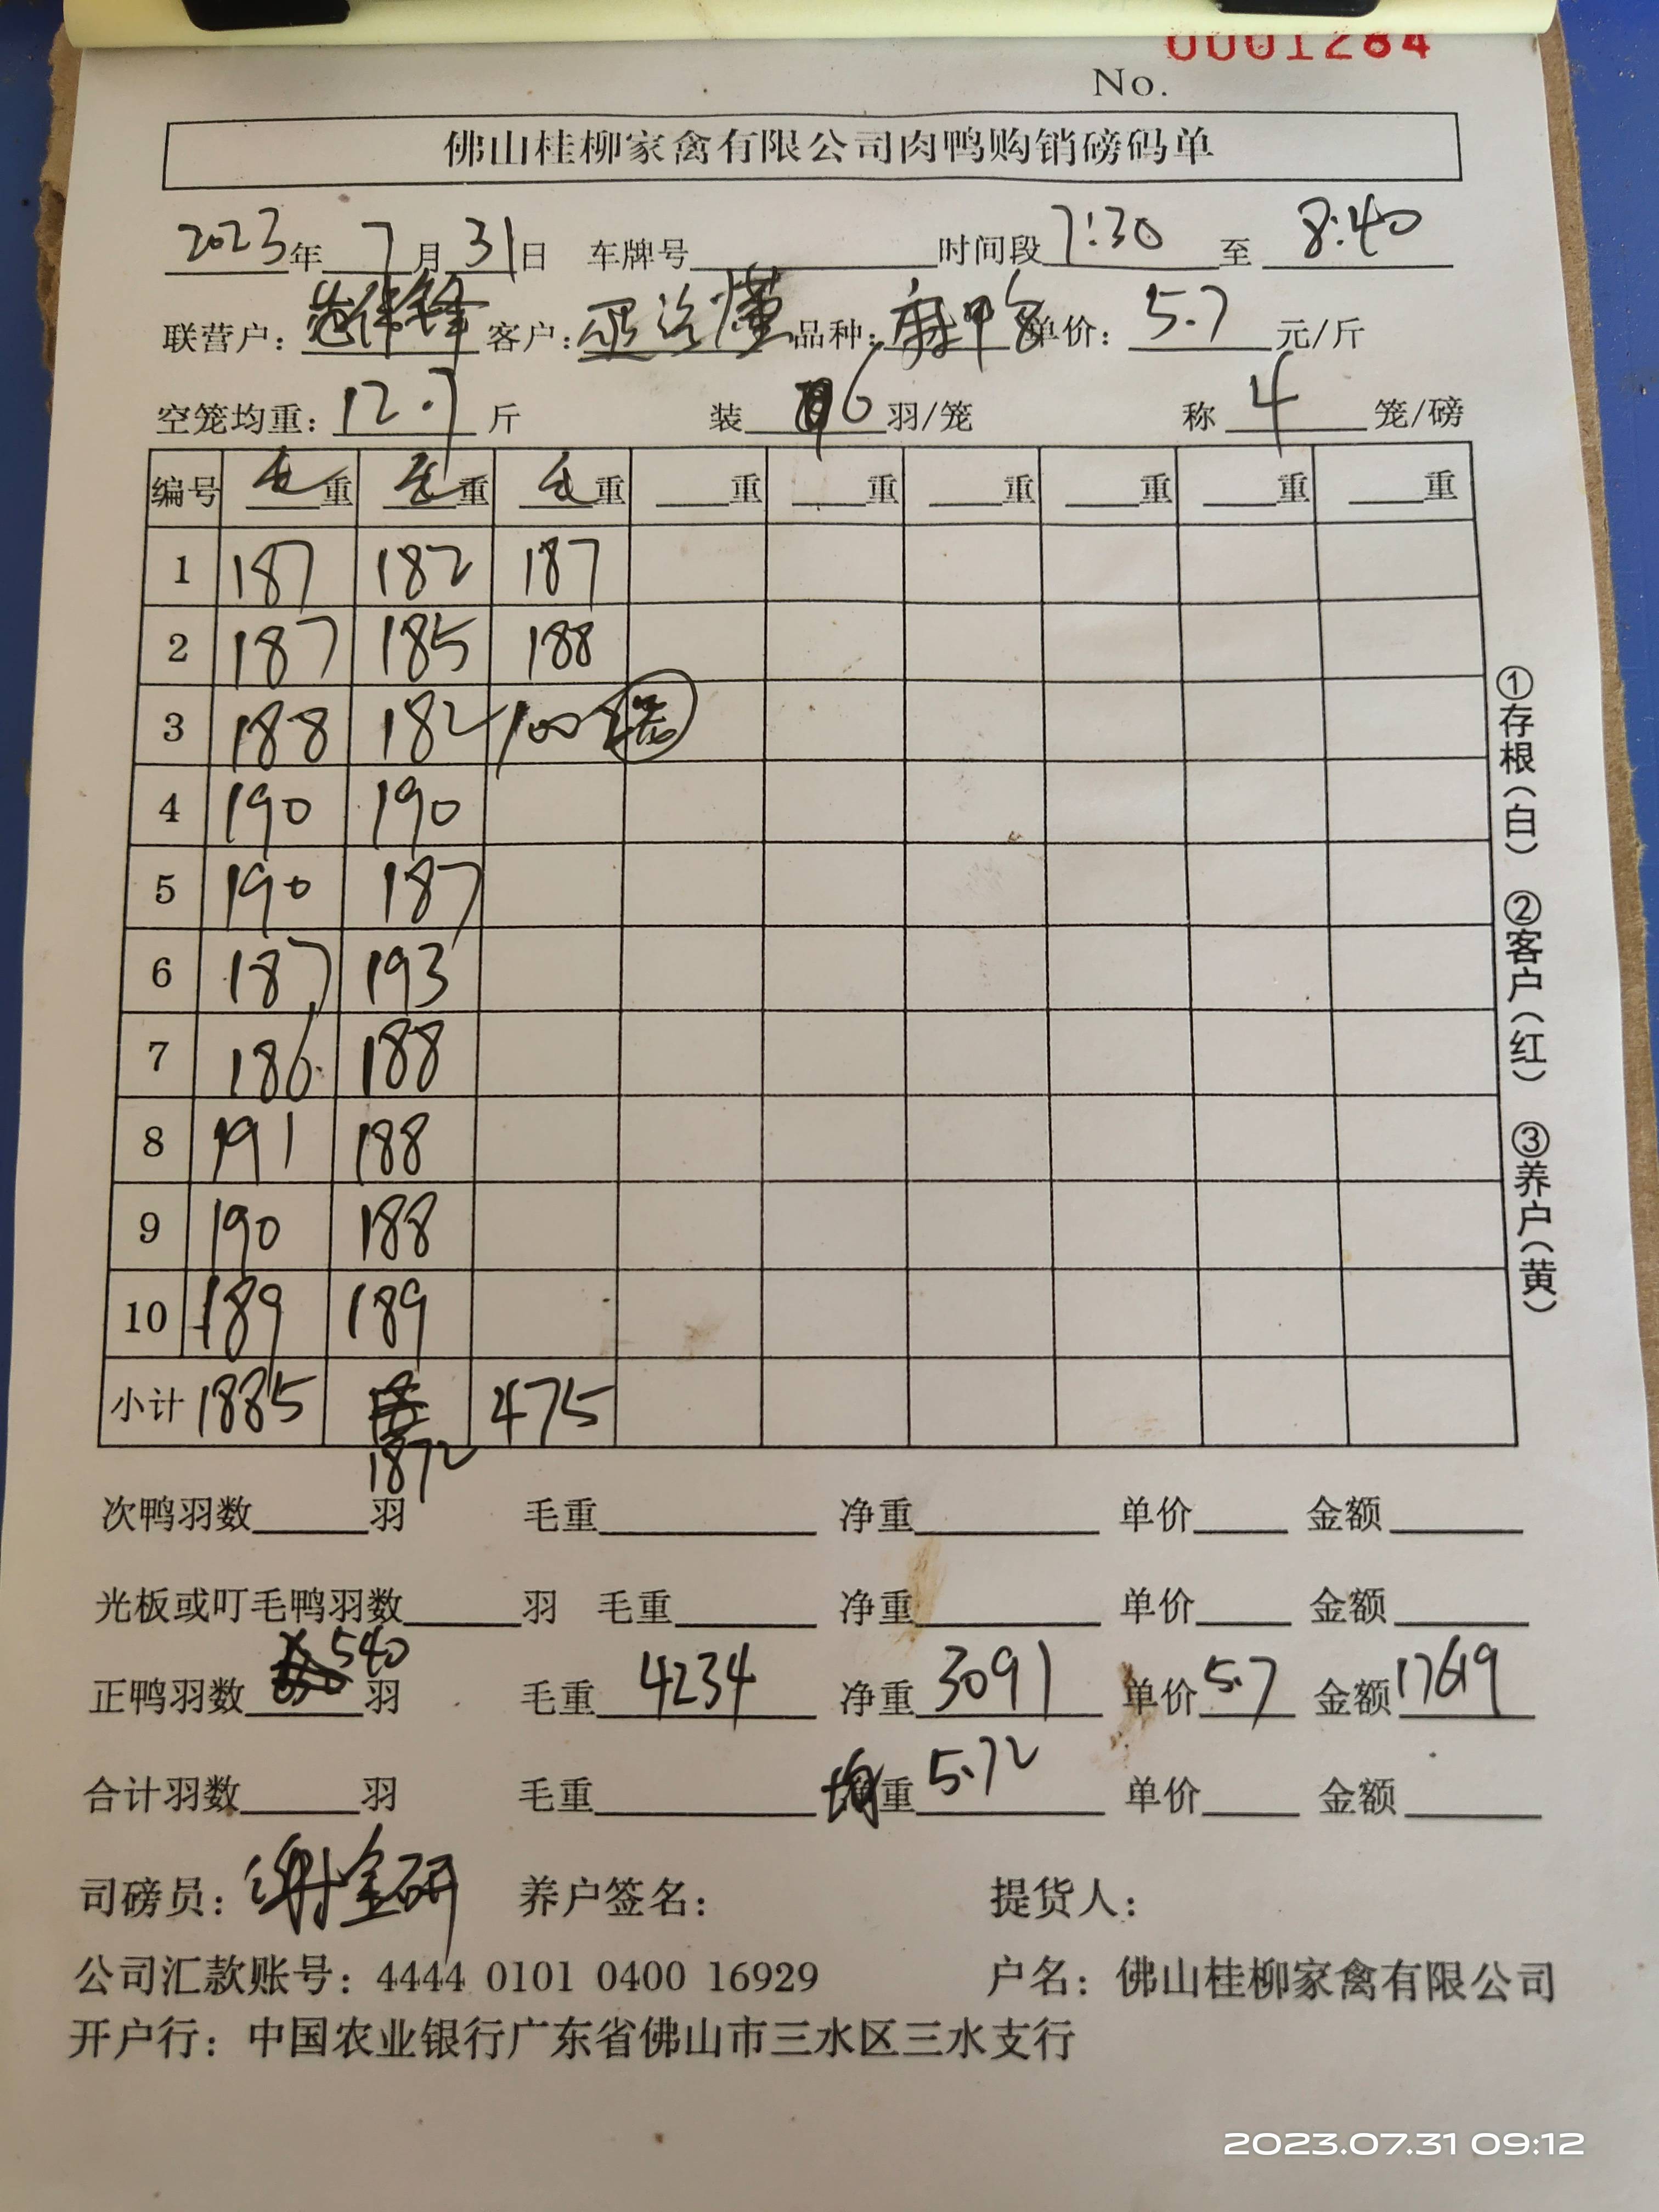 0001284
No.
佛山桂柳家禽有限公司肉鸭购销磅码单
2023年 7月31日 车牌号 时间段 7:30 至 8:40
联营户: 锋 客户: 品种: 麻甲 单价: 5.7 元/斤
空笼均重: 12.7 斤 装 6 羽/笼 称 4 笼/磅
编号 毛重 毛重 毛重 重 重 重 重 重 重
1 187 182 187
2 187 185 188
3 188 182 100
4 190 190
5 190 187
6 187 193
7 186 188
8 191 188
9 190 188
10 189 189
小计 1885 1872 475
次鸭羽数 羽 毛重 净重 单价 金额
光板或叮毛鸭羽数 羽 毛重 净重 单价 金额
正鸭羽数 540 羽 毛重 4234 净重 3091 单价 5.7 金额 17619
合计羽数 羽 毛重 均重 5.72 单价 金额
司磅员: 谢金研 养户签名: 提货人:
公司汇款账号: 4444 0101 0400 16929 户名: 佛山桂柳家禽有限公司
开户行: 中国农业银行广东省佛山市三水区三水支行
①存根(白) ②客户(红) ③养户(黄)
2023.07.31 09:12